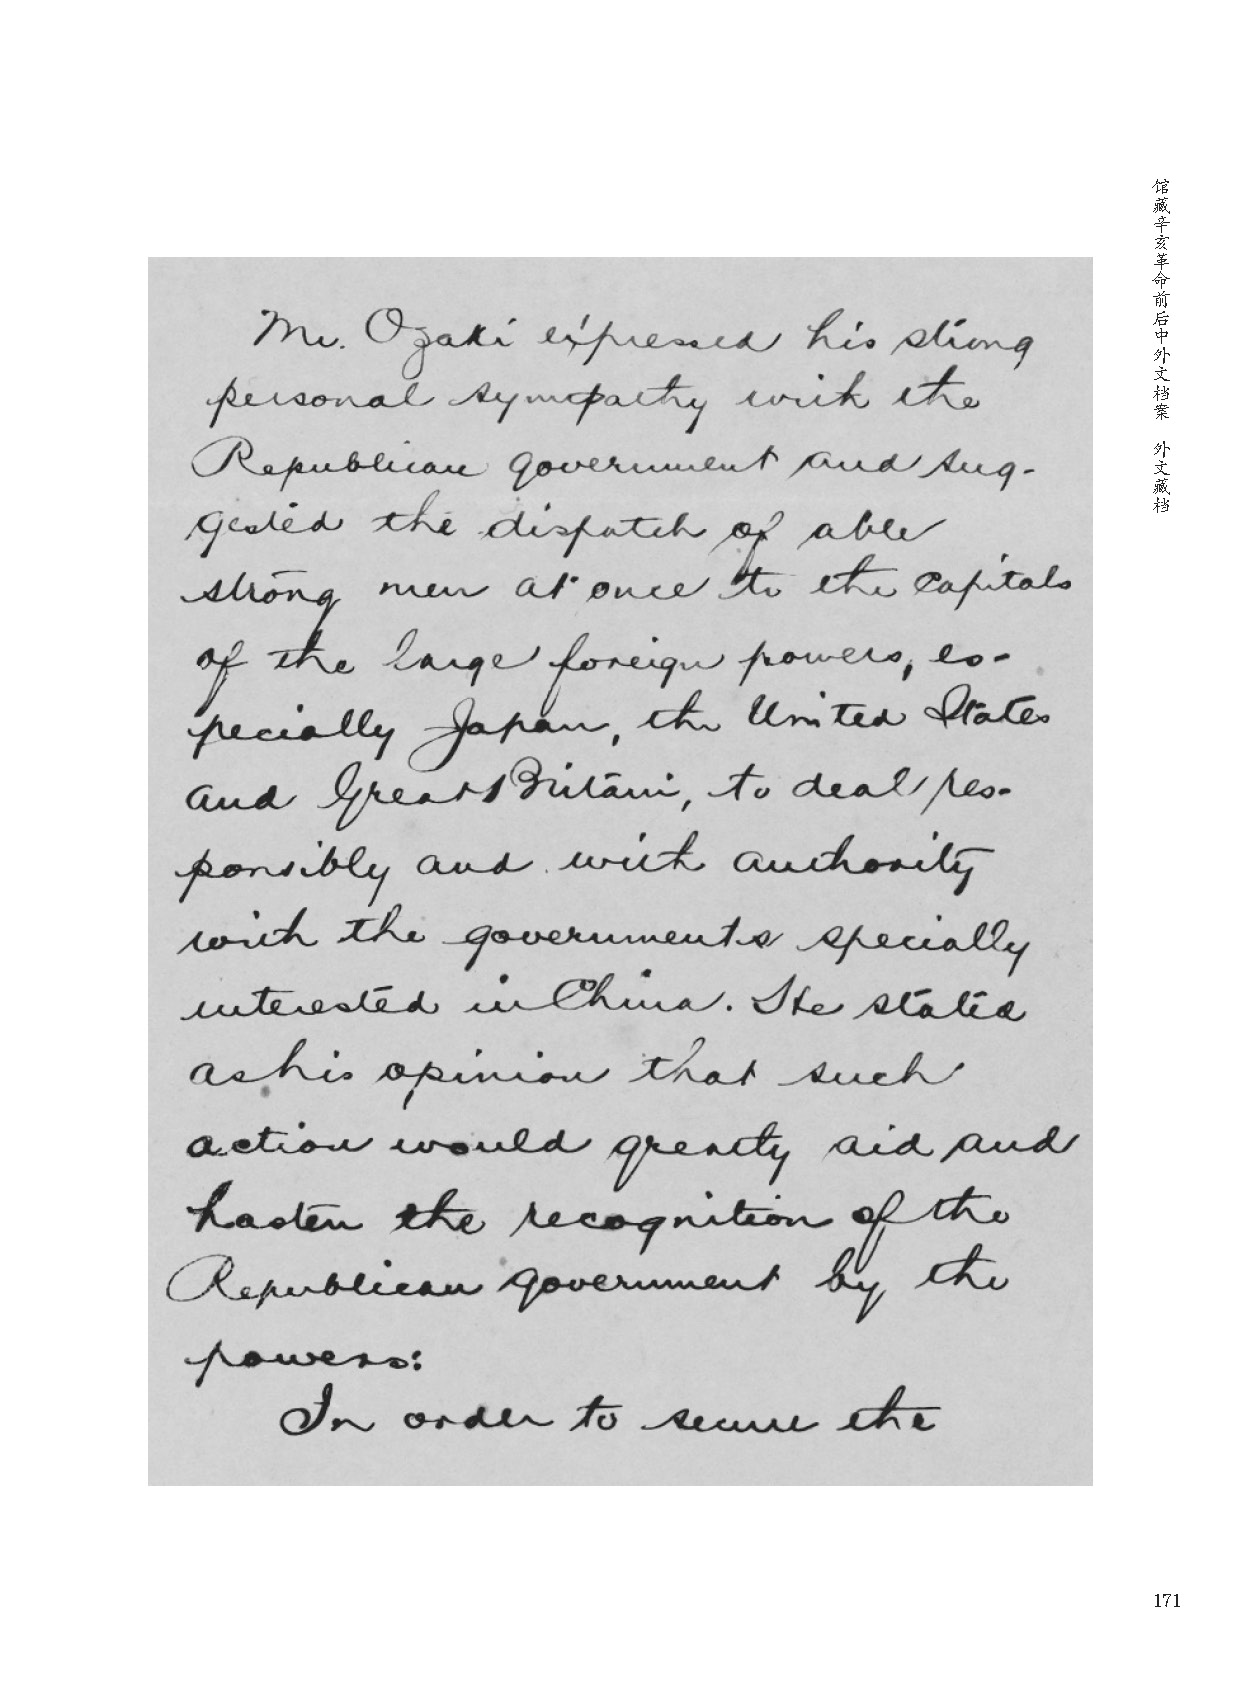 Mr. Ozaki expressed his strong
personal sympathy with the
Republican government and sug-
gested the dispatch of able
strong men at once to the capitals
of the large foreign powers, es-
pecially Japan, the United States
and Great Britain, to deal res-
ponsibly and with authority
with the governments specially
interested in China. He stated
as his opinion that such
action would greatly aid and
hasten the recognition of the
Republican government by the
powers:
In order to secure the
馆藏辛亥革命前后中外文档案 外文藏档
171